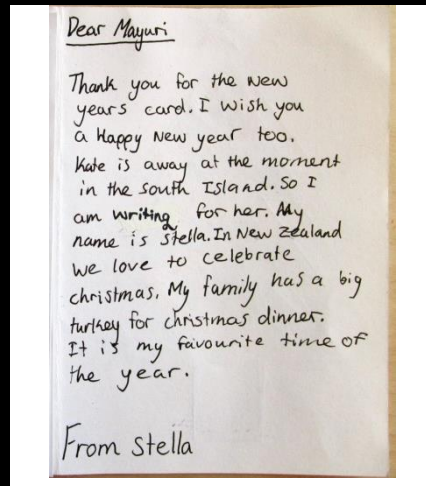 Dear Mayuri
Thank you for the New
years card. I wish you
a Happy New year too.
Kate is away at the moment
in the South Island. So I
am writing for her. My
name is Stella. In New Zealand
we love to celebrate
christmas. My family has a big
turkey for christmas dinner.
It is my favourite time of
the year.
From Stella